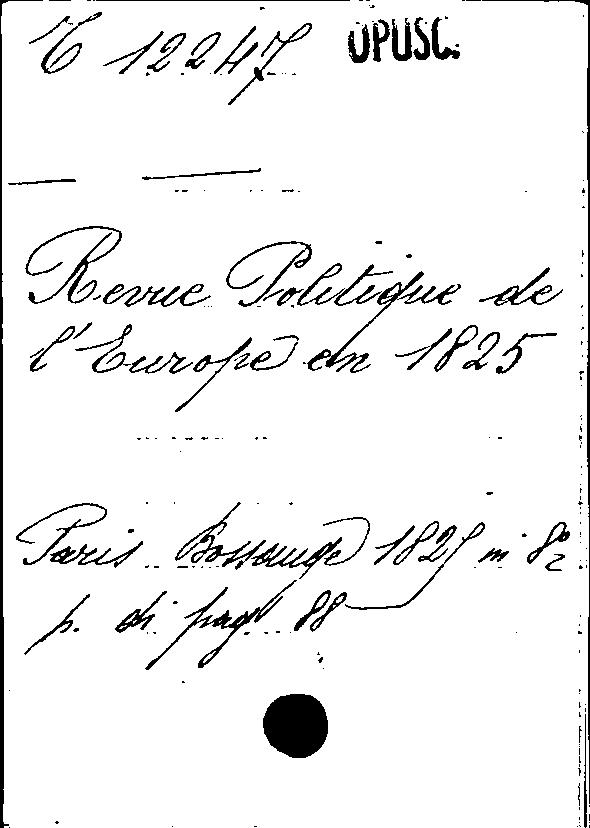 C 12247 OPUSC.
Revue Politique de
l'Europe en 1825
Paris Bossange 1825 in 8º
p. di pag. 88